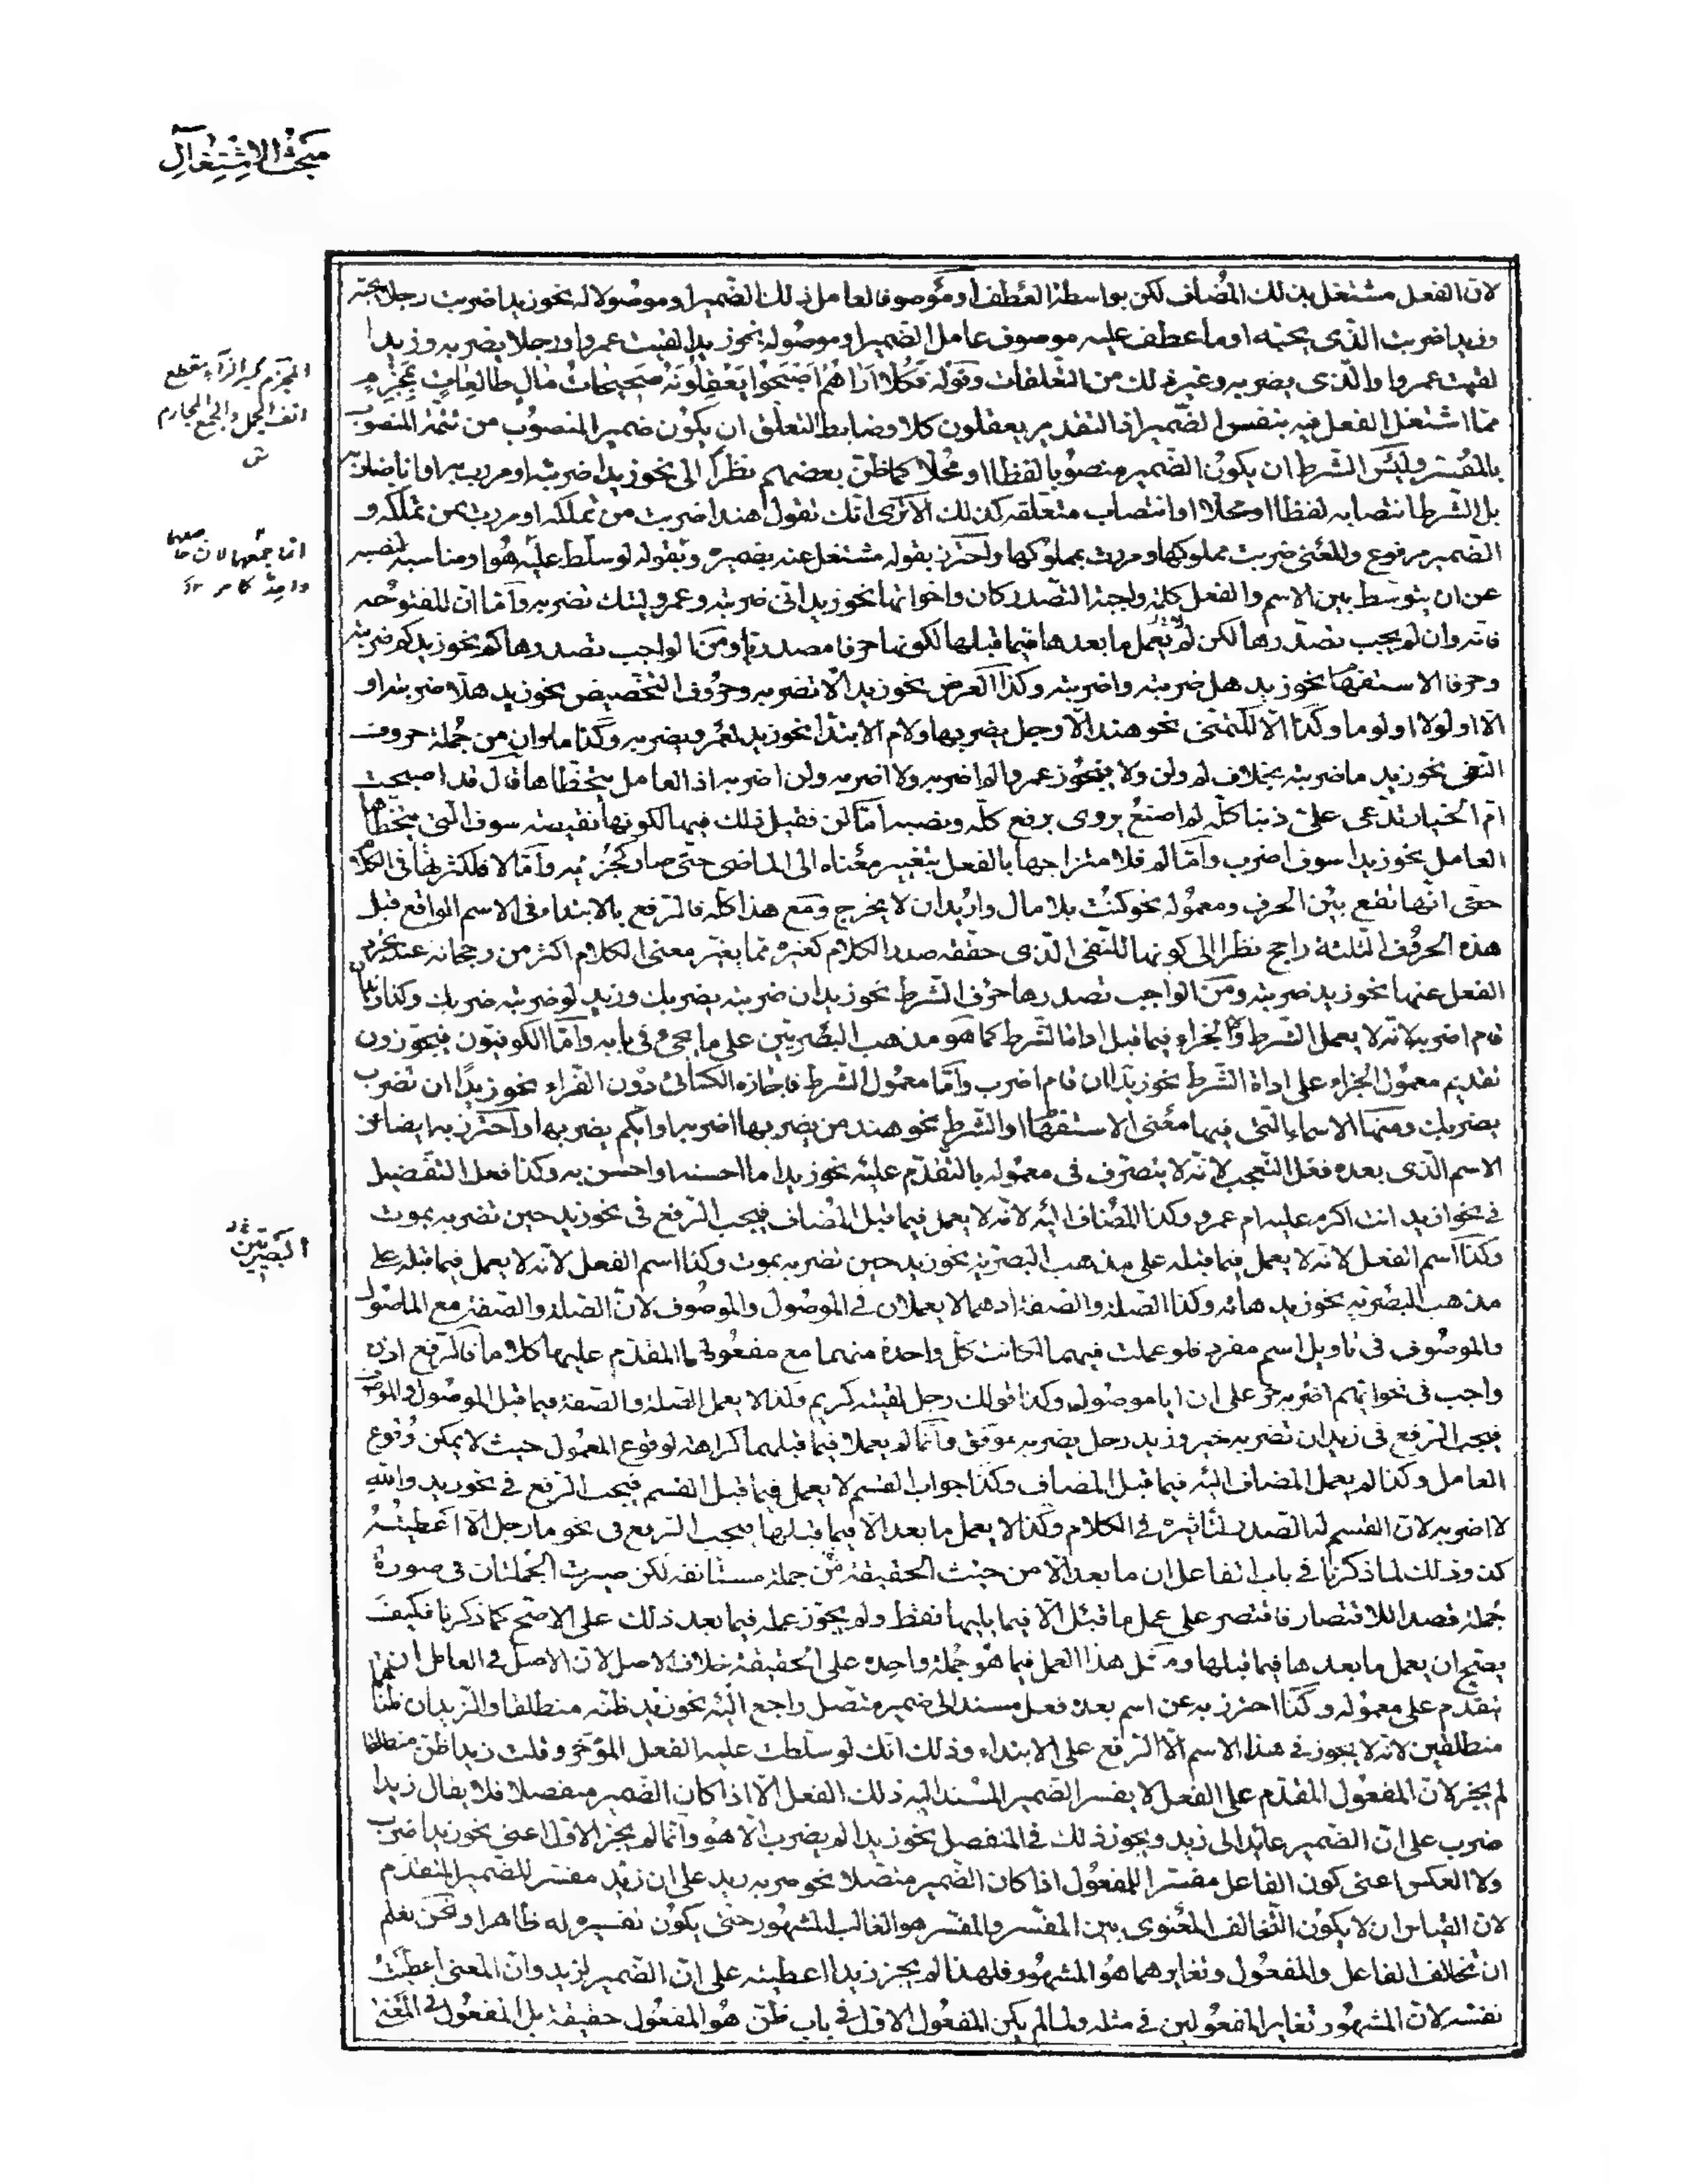 مبحث الاشتغال
لان الفعل مشتغل بذلك المضاف لكن بواسطة العطف او موصوفا لعامل ذلك الضمير او موصولا له نحو زيدا ضربت رجلا يحبه
وزيدا ضربت الذى يحبه او ما عطف عليه موصوف عامل الضمير او موصوله نحو زيدا لقيت عمروا ورجلا يضربه وزيدا
لقيت عمروا والذى يضربه وغير ذلك من التعلقات وقوله فكلا اراهم اصبحوا يعقلونه صحيحات مال طالعات بمخرم
مما اشتغل الفعل فيه بنفس الضمير اذ التقدير يعقلون كلا وضابط التعلق ان يكون ضمير المنصوب من تتمة المنصوب
بالمفسر وليس الشرط ان يكون الضمير منصوبا لفظا او محلا كما ظن بعضهم نظرا الى نحو زيدا ضربته او مررت به او انا ضاربه
بل الشرط انتصابه لفظا او محلا او انتصاب متعلقه كذلك الا ترى انك تقول هندا ضربت من تملكه او مررت بمن تملكه و
الضمير مرفوع والمعنى ضربت مملوكها ومررت بمملوكها واحترز بقوله مشتغل عنه بضميره وبقوله لو سلط عليه هو او مناسبه لنصبه
عن ان يتوسط بين الاسم والفعل كلمة واجبة التصدر كان واخواتها نحو زيد انى ضربته وعمرو ليتك تضربه واما ان المفتوحة
فانه وان لم يجب تصدرها لكن لم يعمل ما بعدها فيما قبلها لكونها حرفا مصدريا ومن الواجب تصدرها كم نحو زيد كم ضربته
وحرفا الاستفهام نحو زيد هل ضربته واضربته وكذا العرض نحو زيد الا تضربه وحروف التحضيض نحو زيد هلا ضربته او
الا او لولا او لوما وكذا الا للتمنى نحو هند الا رجل يضربها ولام الابتداء نحو زيد لعمرو يضربه وكذا ما وان من جملة حروف
النفى نحو زيد ما ضربته بخلاف لم ولن ولا نحو عمروا لم اضربه ولا اضربه ولن اضربه اذ العامل يتخطاها قال قد اصبحت
ام الخيار تدعى على ذنبا كله لم اصنع يروى برفع كله ونصبه اما لن فقيل ذلك فيها لكونها نقيضة سوف التى يتخطاها
العامل نحو زيدا سوف اضرب واما لم فلامتزاجها بالفعل بتغيير معناه الى الماضى حتى صار كجزئه واما لا فلكثرتها فى الكلام
حتى انها تقع بين الحرف ومعموله نحو كنت بلا مال واريد ان لا يخرج ومع هذا كله فالرفع بالابتداء فى الاسم الواقع قبل
هذه الحروف الثلثة راجح نظرا الى كونها للنفى الذى حققه صدر الكلام كغيره مما يغير معنى الكلام اكثر من رجحانه عند تجرد
الفعل عنها نحو زيد ضربته ومن الواجب تصدرها حرف الشرط نحو زيد ان ضربته يضربك وزيد لو ضربته ضربك وكذا زيد ان
قام اضربه لانه لا يعمل الشرط والجزاء فيما قبل اداة الشرط كما هو مذهب البصريين على ما يجئ فى بابه واما الكوفيون فيجوزون
تقديم معمول الجزاء على اداة الشرط نحو زيدا ان قام اضرب واما معمول الشرط فاجازه الكسائى دون الفراء نحو زيدا ان تضرب
يضربك ومنها الاسماء التى فيها معنى الاستفهام او الشرط نحو هند من يضربها اضربه او ايكم يضربها واحترز به ايضا عن
الاسم الذى بعده فعل التعجب لانه لا يتصرف فى معموله بالتقدم عليه نحو زيد ما احسنه او احسن به وكذا فعل التفضيل
فى نحو ازيد انت اكرم عليه ام عمرو وكذا المضاف اليه لانه لا يعمل فيما قبل المضاف فيجب الرفع فى نحو زيد حين تضربه يموت
وكذا اسم الفعل لانه لا يعمل فيما قبله على مذهب البصرية نحو زيد حين تضربه يموت وكذا اسم الفعل لانه لا يعمل فيما قبله على
مذهب البصرية نحو زيد هاته وكذا الصلة والصفة اذ هما لا يعملان فى الموصول والموصوف لان الصلة والصفة مع الموصول
والموصوف فى تاويل اسم مفرد فلو عملت فيهما لكانت كل واحدة منهما مع مفعولها المقدم عليها كلاما فالرفع اذن
واجب فى نحو ايهم اضربه حر على ان ايا موصوله وكذا قولك رجل لقيته كريم ولذا لا يعمل الصلة والصفة فيما قبل الموصول والموصوف
فيجب الرفع فى زيد ان تضربه خير وزيد رجل يضربه موفق وانما لم يعملا فيما قبلهما كراهة لوقوع المعمول حيث لا يمكن وقوع
العامل وكذا لم يعمل المضاف اليه فيما قبل المضاف وكذا جواب القسم لا يعمل فيما قبل القسم فيجب الرفع فى نحو زيد والله
لا اضربه لان القسم له الصدر لتاثيره فى الكلام وكذا لا يعمل ما بعد الا فيما قبلها فيجب الرفع فى نحو ما رجل الا اعطيته
كذا وذلك لما ذكرنا فى باب الفاعل ان ما بعد الا من حيث الحقيقة من جملة مستانفة لكن صيرت الجملتان فى صورة
جملة قصدا للاختصار فاقتصر على عمل ما قبل الا فيما يليها فقط ولم يجوز عمله فيما بعد ذلك على الاصح كما ذكرنا فكيف
يصح ان يعمل ما بعدها فيما قبلها ومثل هذا العمل فيما هو جملة واحدة على الحقيقة خلاف الاصل لان الاصل فى العامل ان
يتقدم على معموله وكذا احترز به عن اسم بعده فعل مسند الى ضمير متصل راجع اليه نحو زيد ظنه منطلقا والزيدان ظناهما
منطلقين لانه لا يجوز فى هذا الاسم الا الرفع على الابتداء وذلك انك لو سلطت عليه الفعل المؤخر وقلت زيدا ظن منطلقا
لم يجز لان المفعول المقدم على الفعل لا يفسر الضمير المسند اليه ذلك الفعل الا اذا كان الضمير منفصلا فلا يقال زيدا
ضرب على ان الضمير عائد الى زيد ويجوز ذلك فى المنفصل نحو زيدا لم يضرب الا هو وانما لم يجز الاول اعنى نحو زيدا ضرب
ولا العكس اعنى كون الفاعل مفسرا للمفعول اذا كان الضمير متصلا نحو ضربه زيد على ان زيد مفسر للضمير المتقدم
لان القياس ان لا يكون التخالف المعنوى بين المفسر والمفسر هو الغالب المشهور حتى يكون تفسيره له ظاهرا ونحن نعلم
ان تخالف الفاعل والمفعول وتغايرهما هو المشهور فلهذا لم يجز زيدا اعطيته على ان الضمير لزيد وان المعنى اعطيت
نفسه لان المشهور تغاير المفعولين فى مثله ولما لم يكن المفعول الاول فى باب ظن هو المفعول حقيقة بل المفعول فى المعنى
المخرم بكسر الراء منقطع
انف الجبل والجمع المخارم
ش
انما جمعها لان
البصريين